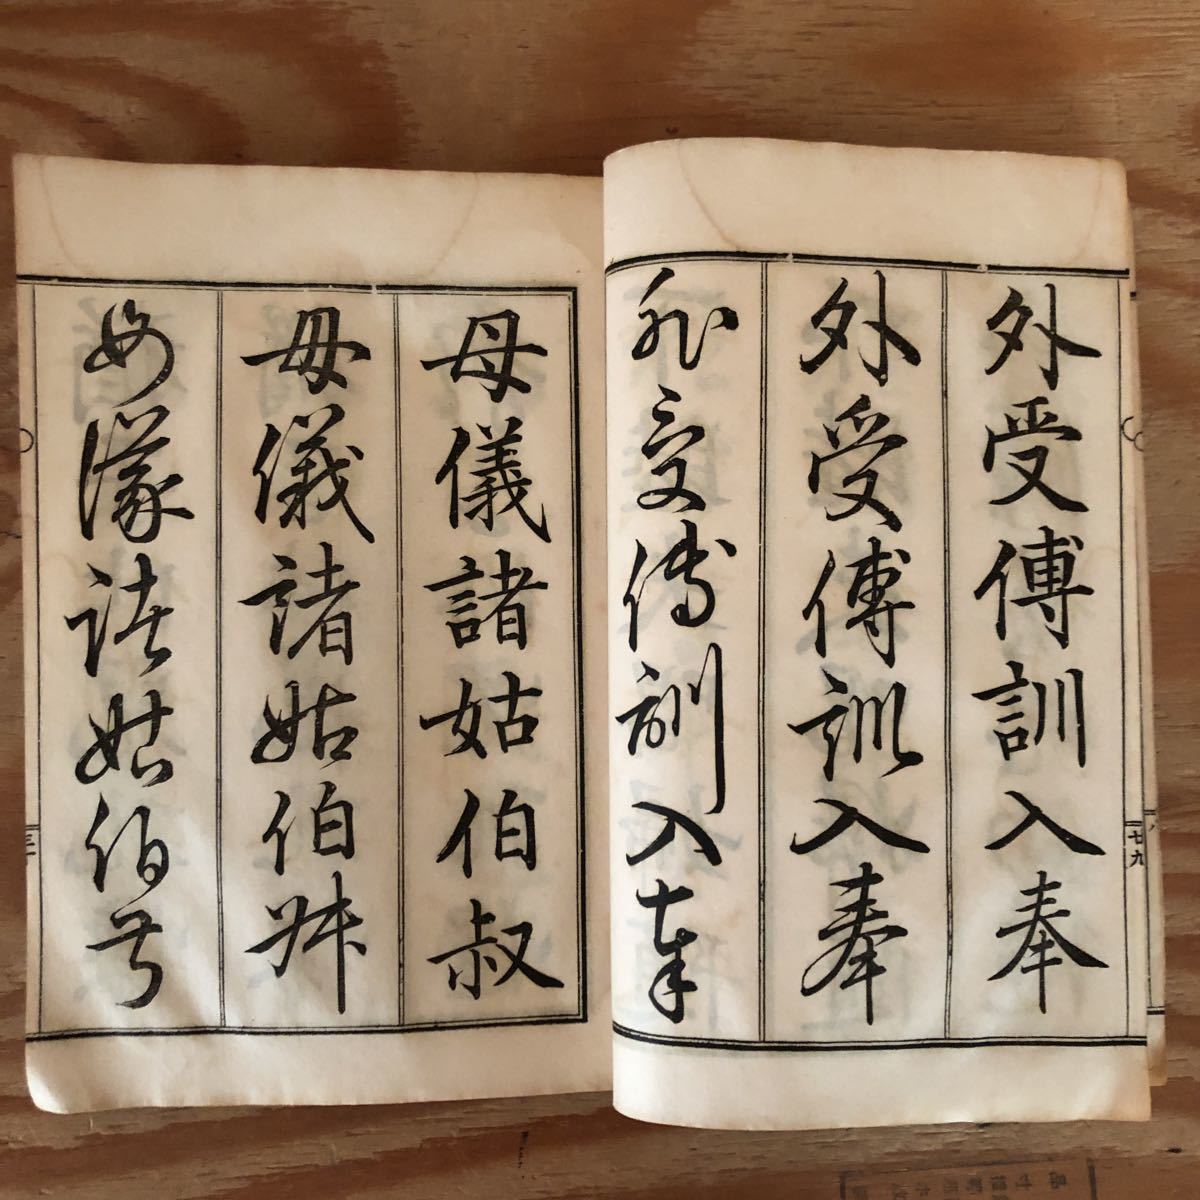 外受傅訓入奉
外受傅訓入奉
外受傅訓入奉
母儀諸姑伯叔
母儀諸姑伯叔
母儀諸姑伯叔
七九